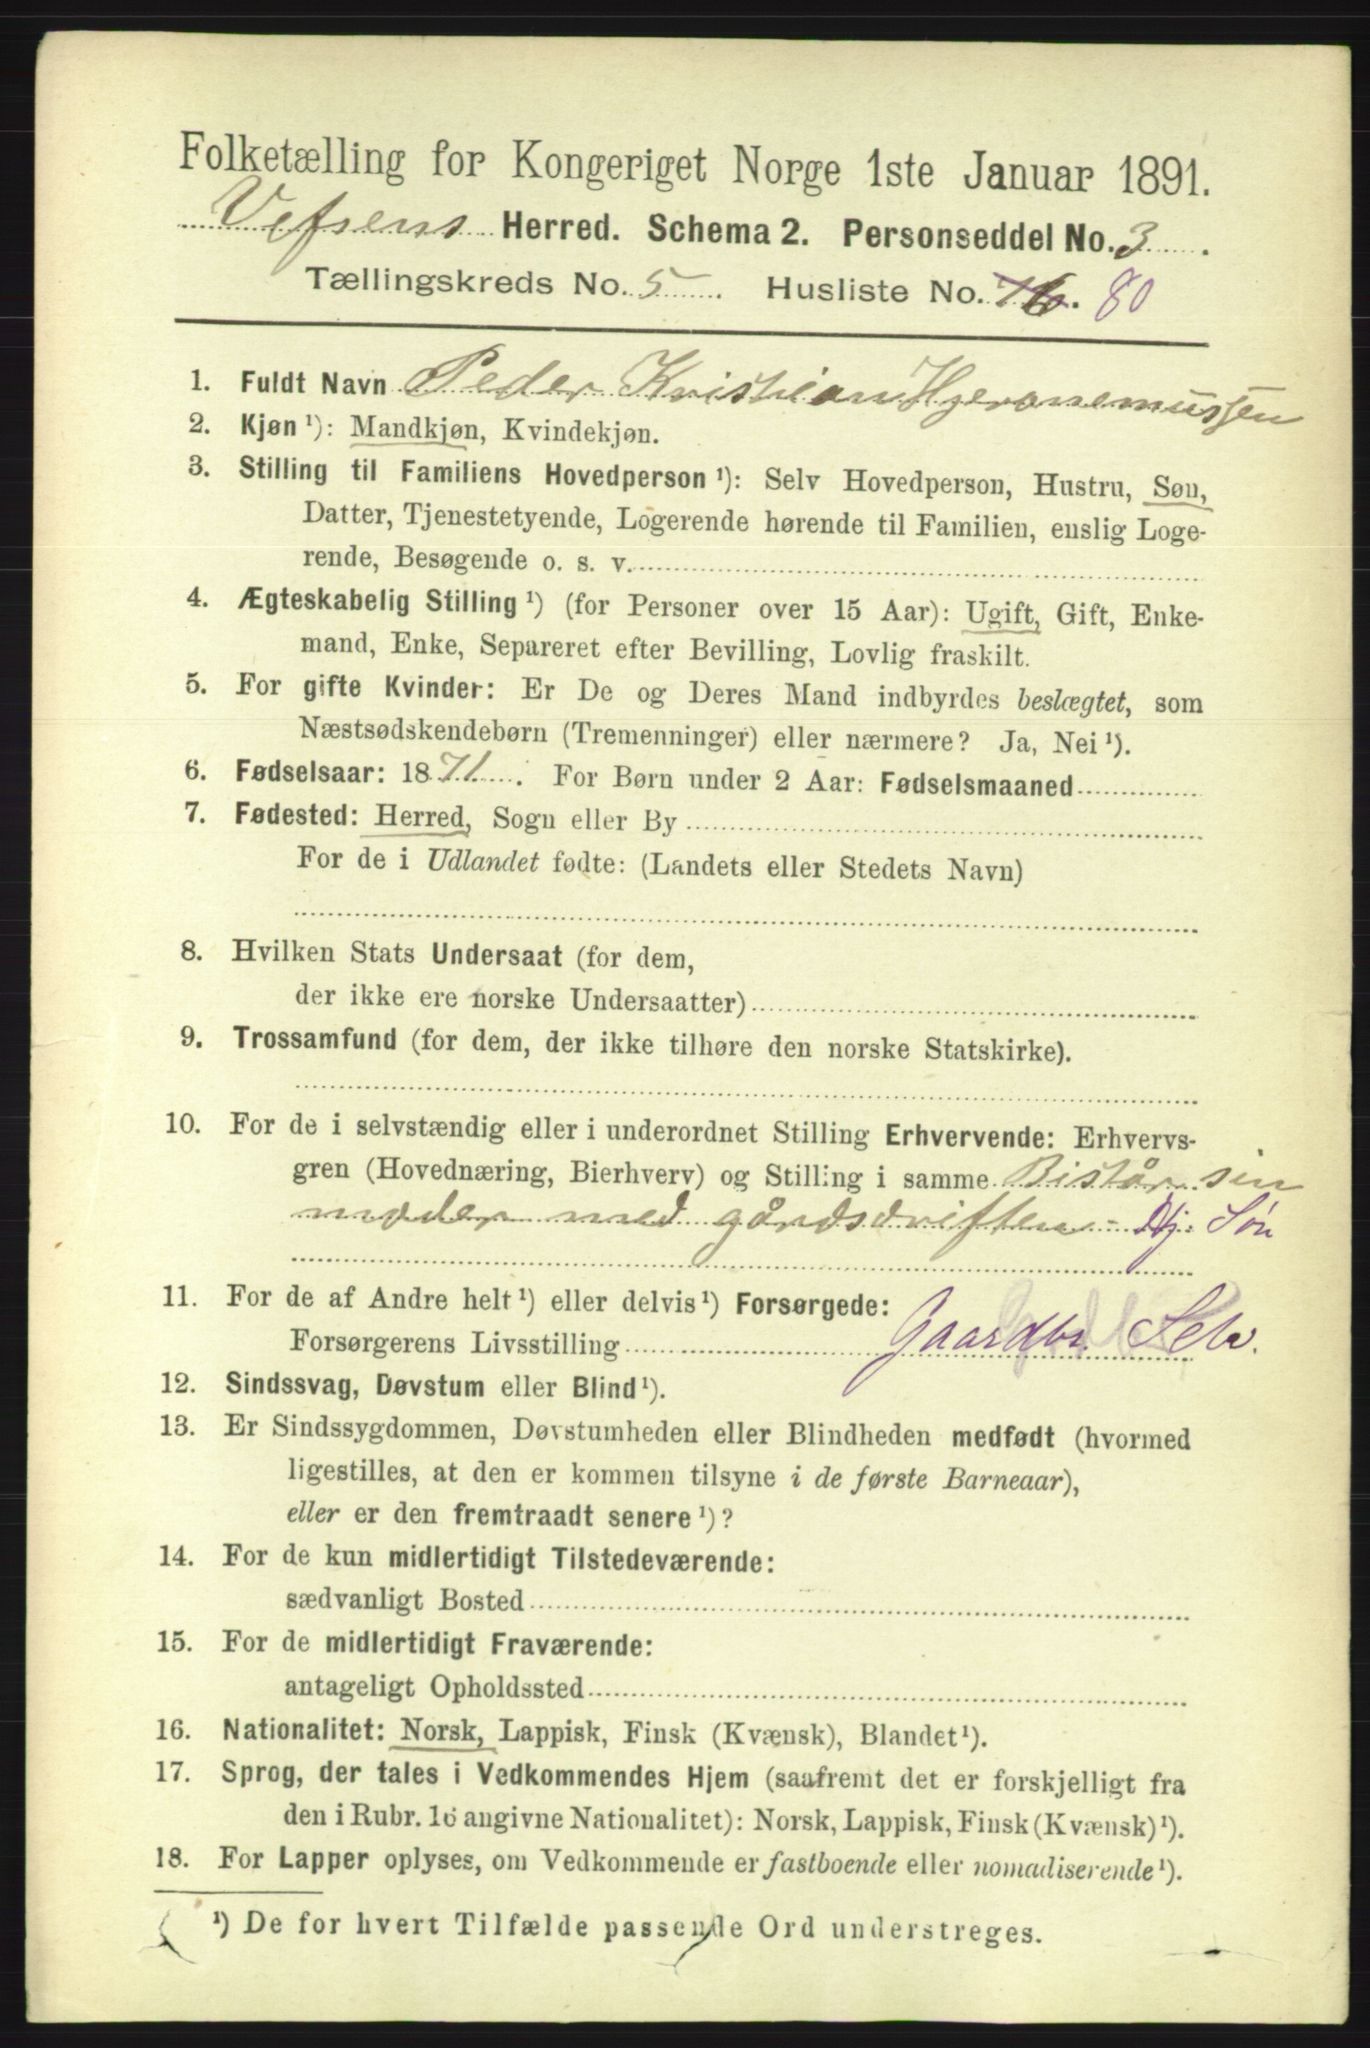 Folketælling for Kongeriget Norge 1ste Januar 1891.
Vefsens Herred. Schema 2. Personseddel No. 3.
Tællingskreds No. 5. Husliste No. 76. 80
1. Fuldt Navn Peder Kristian Hjeronemussen
2. Kjøn ¹): Mandkjøn, Kvindekjøn.
3. Stilling til Familiens Hovedperson ¹): Selv Hovedperson, Hustru, Søn,
Datter, Tjenestetyende, Logerende hørende til Familien, enslig Loge-
rende, Besøgende o. s. v.
4. Ægteskabelig Stilling ¹) (for Personer over 15 Aar): Ugift, Gift, Enke-
mand, Enke, Separeret efter Bevilling, Lovlig fraskilt.
5. For gifte Kvinder: Er De og Deres Mand indbyrdes beslægtet, som
Næstsødskendebørn (Tremenninger) eller nærmere? Ja, Nei ¹).
6. Fødselsaar: 1871. For Børn under 2 Aar: Fødselsmaaned
7. Fødested: Herred, Sogn eller By
For de i Udlandet fødte: (Landets eller Stedets Navn)
8. Hvilken Stats Undersaat (for dem,
der ikke ere norske Undersaatter)
9. Trossamfund (for dem, der ikke tilhøre den norske Statskirke).
10. For de i selvstændig eller i underordnet Stilling Erhvervende: Erhvervs-
gren (Hovednæring, Bierhverv) og Stilling i samme Bistår sin
moder med gårdsdriften - Hj. Søn
11. For de af Andre helt ¹) eller delvis ¹) Forsørgede:
Forsørgerens Livsstilling Gaardbr. Selv.
12. Sindssvag, Døvstum eller Blind ¹).
13. Er Sindssygdommen, Døvstumheden eller Blindheden medfødt (hvormed
ligestilles, at den er kommen tilsyne i de første Barneaar),
eller er den fremtraadt senere ¹)?
14. For de kun midlertidigt Tilstedeværende:
sædvanligt Bosted
15. For de midlertidigt Fraværende:
antageligt Opholdssted
16. Nationalitet: Norsk, Lappisk, Finsk (Kvænsk), Blandet ¹).
17. Sprog, der tales i Vedkommendes Hjem (saafremt det er forskjelligt fra
den i Rubr. 16 angivne Nationalitet): Norsk, Lappisk, Finsk (Kvænsk) ¹).
18. For Lapper oplyses, om Vedkommende er fastboende eller nomadiserende ¹).
¹) De for hvert Tilfælde passende Ord understreges.